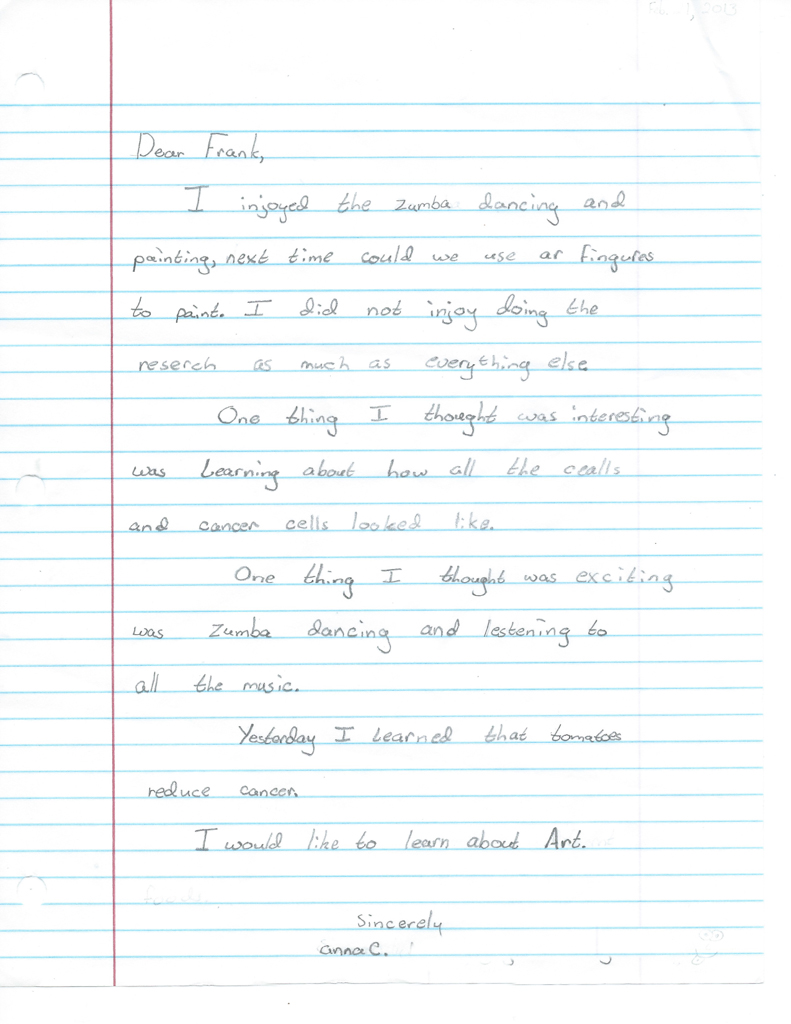 Dear Frank,
I injoyed the zumba dancing and
painting, next time could we use ar fingures
to paint. I did not injoy doing the
reserch as much as everything else
One thing I thought was interesting
was Learning about how all the cealls
and cancer cells looked like.
One thing I thought was exciting
was Zumba dancing and lestening to
all the music.
Yesterday I Learned that tomatoes
reduce cancer.
I would like to learn about Art.
Sincerely
anna C.